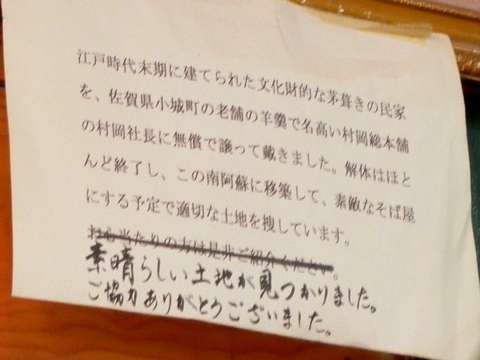 江戸時代末期に建てられた文化財的な茅葺きの民家
を、佐賀県小城町の老舗の羊羹で名高い村岡総本舗
の村岡社長に無償で譲って戴きました。解体はほと
んど終了し、この南阿蘇に移築して、素敵なそば屋
にする予定で適切な土地を捜しています。
お心当たりの方は是非ご紹介ください。
素晴らしい土地が見つかりました。
ご協力ありがとうございました。